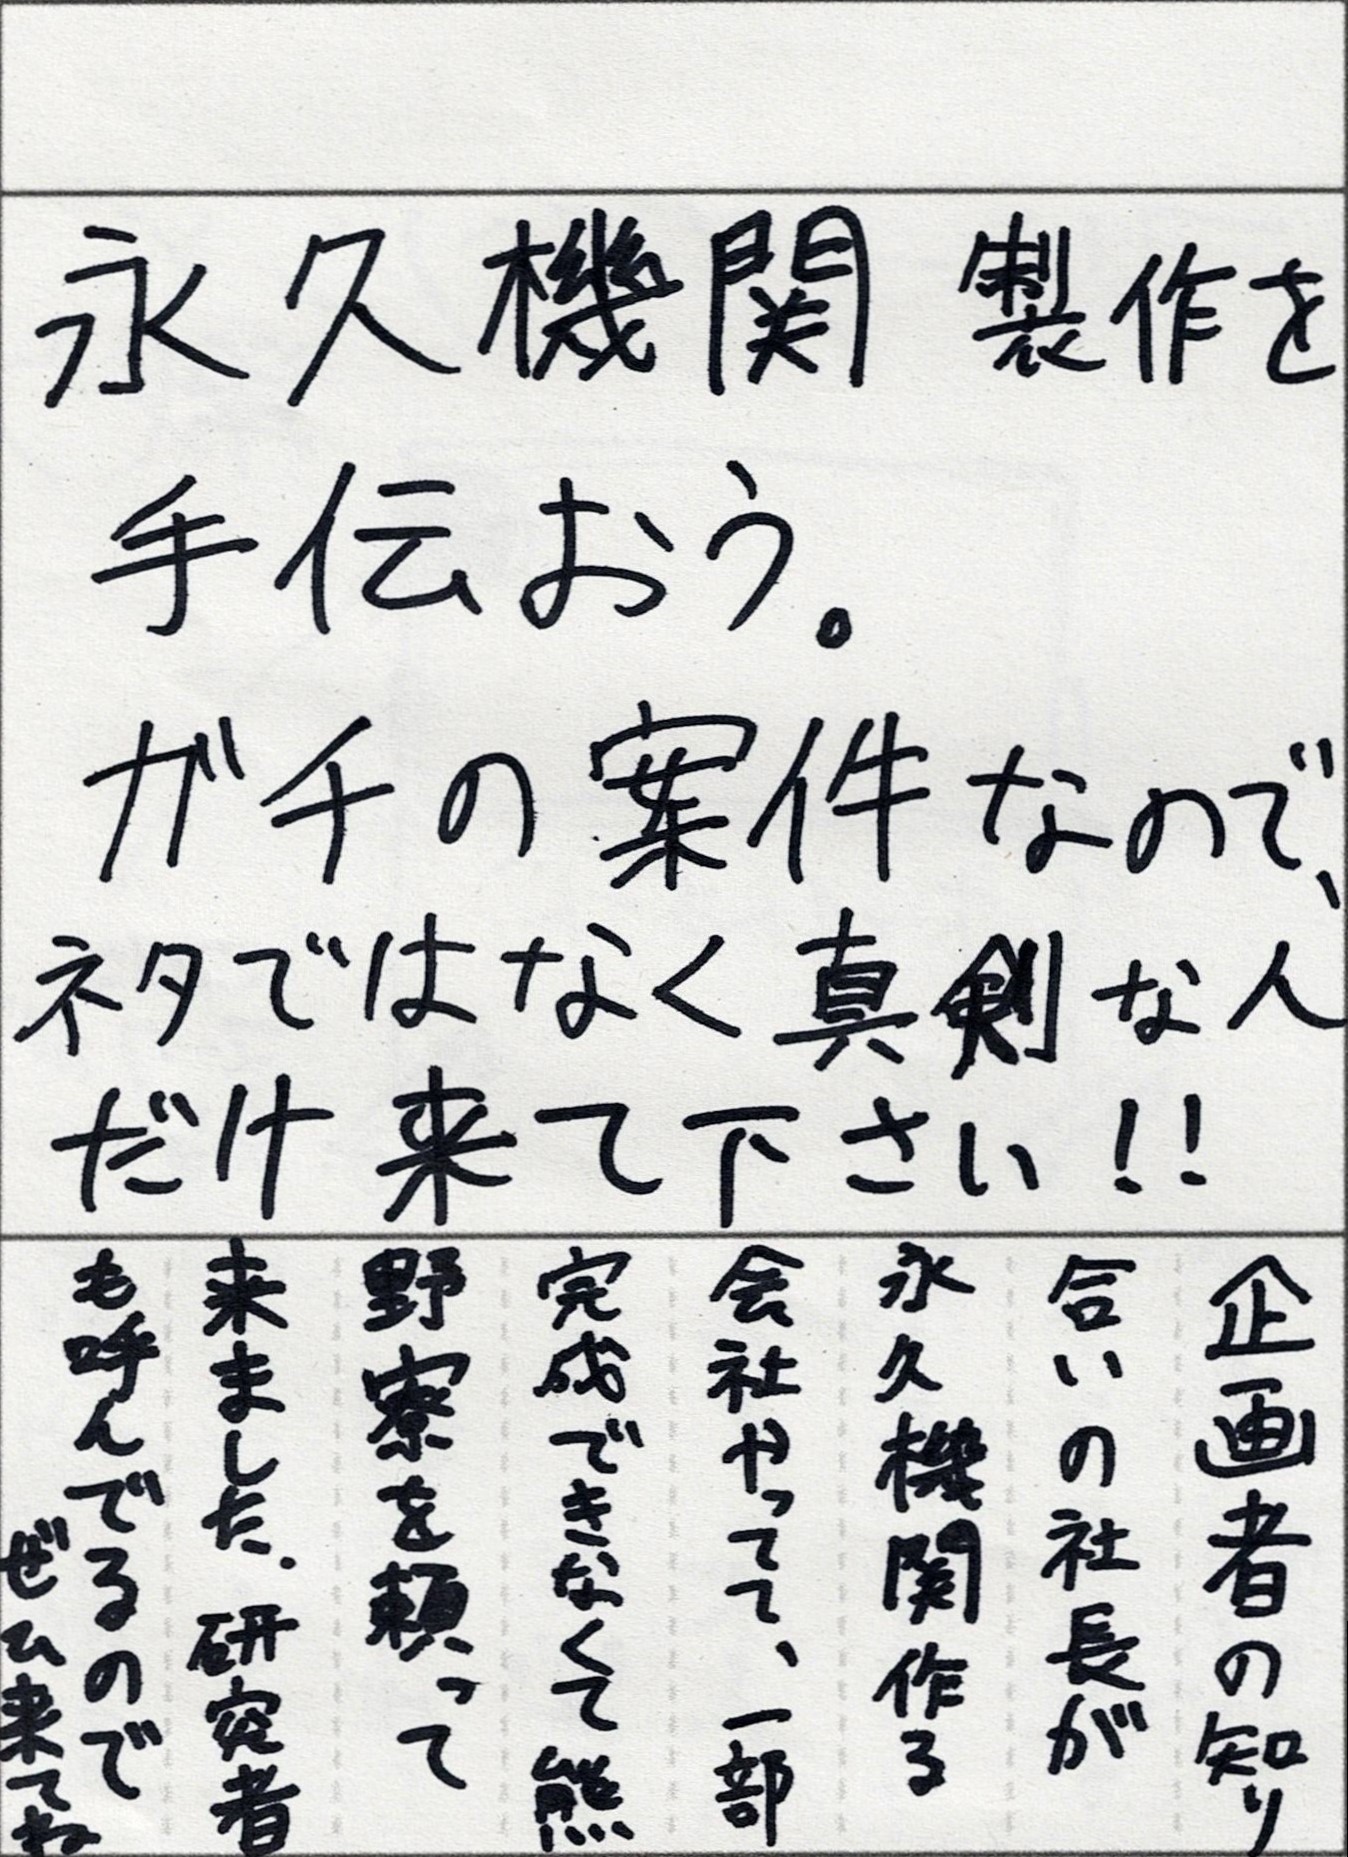 永久機関 製作を
手伝おう。
ガチの案件なので、
ネタではなく真剣な人
だけ来て下さい!!
企画者の知り
合いの社長が
永久機関作る
会社やってて、一部
完成できなくて熊
野寮を頼って
来ました。研究者
も呼んでるので
ぜひ来てね